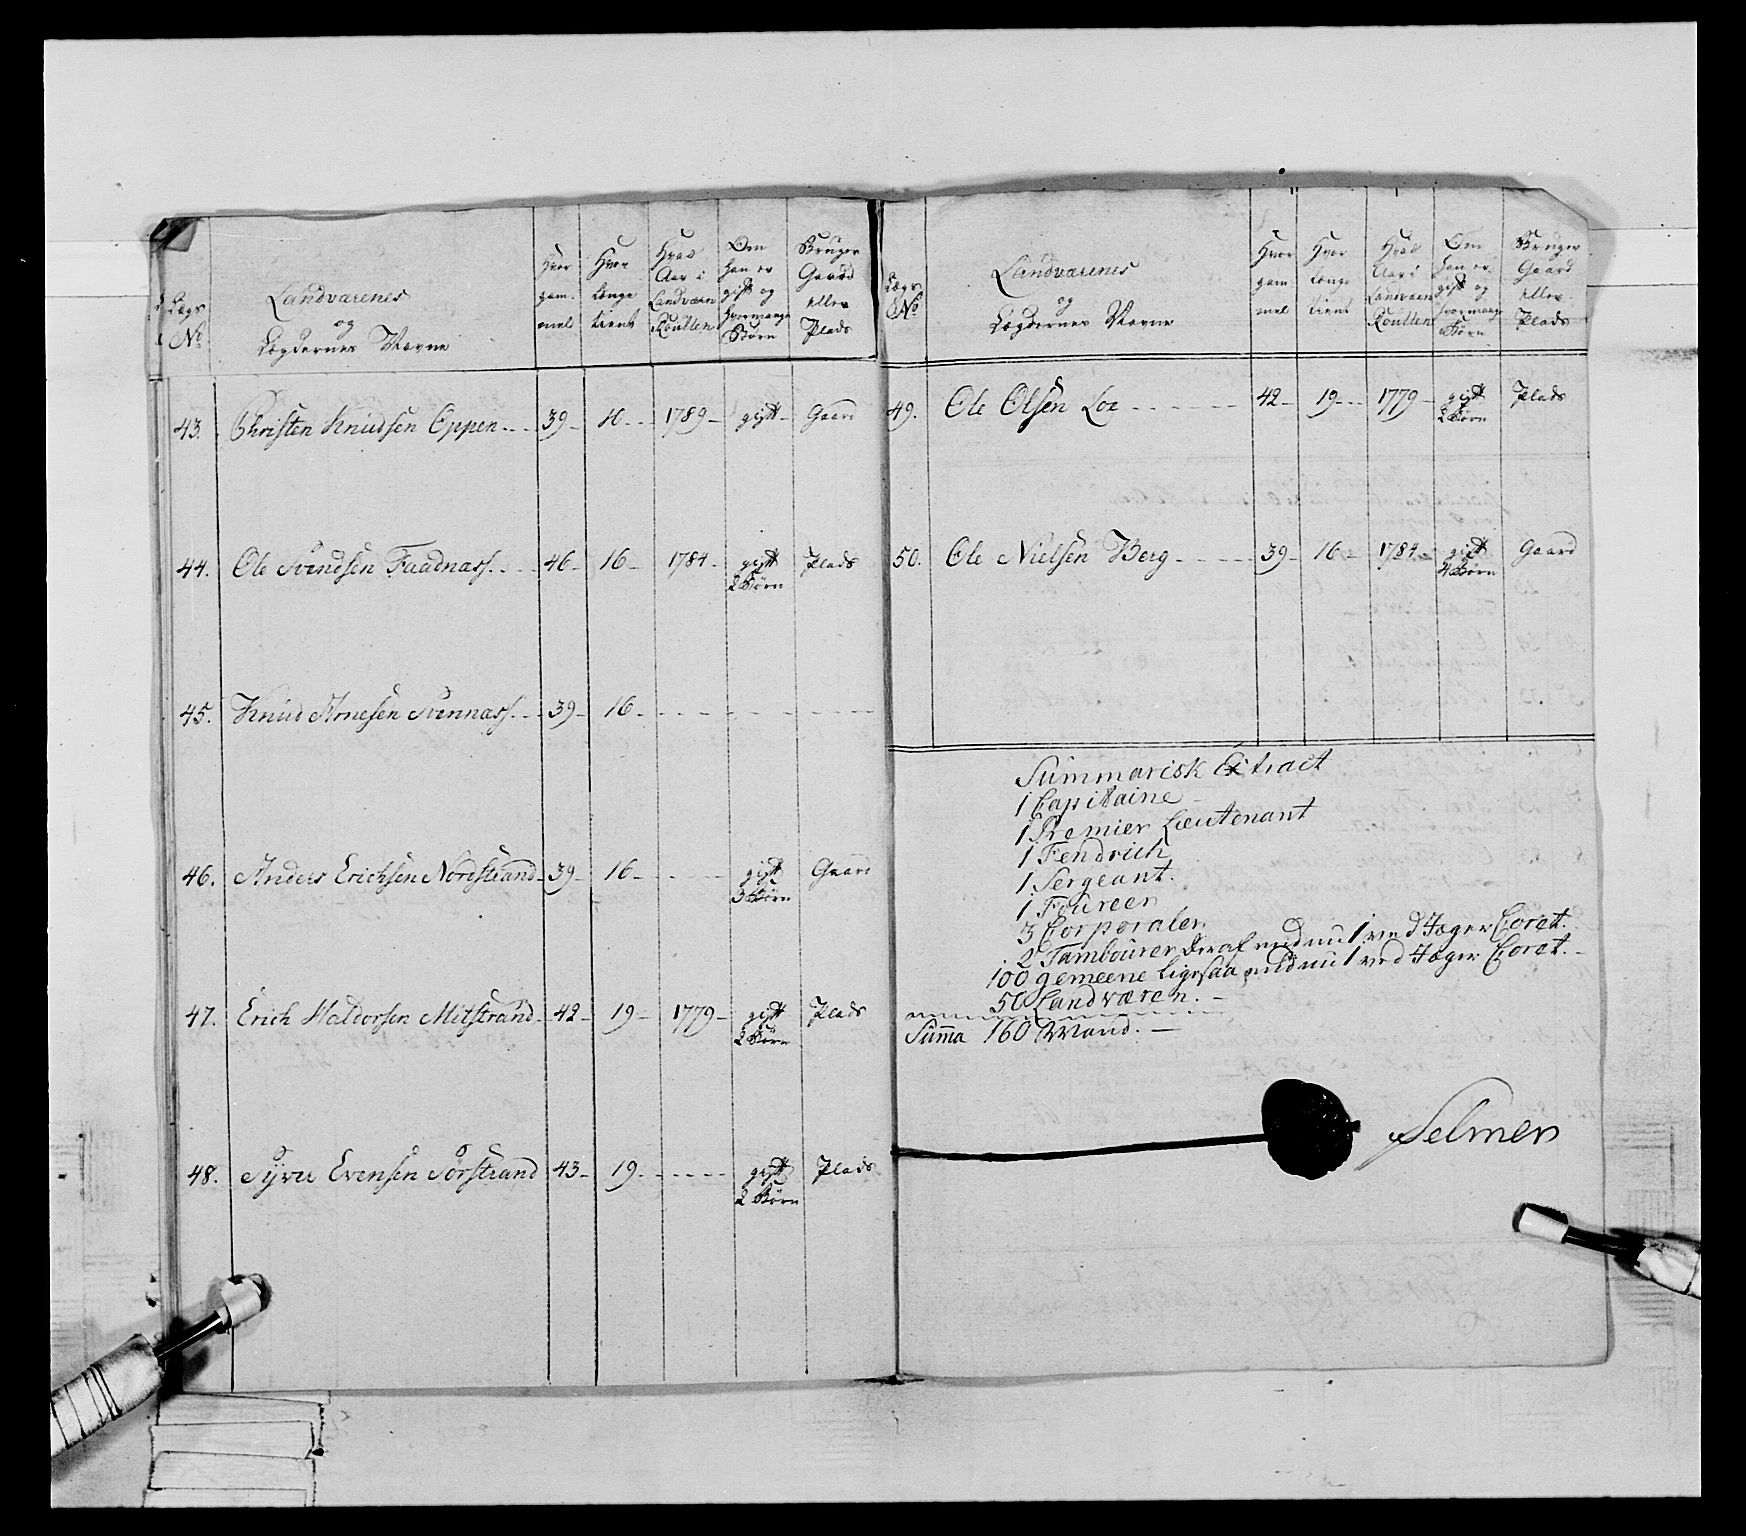 Lægs No | Landværnes og Lægdernes Navne | Hvor gammel | Hvor længe tient | Hvad Aar i Landværn Roullen | Om han er gift og hvormange Børn | Bruger Gaard eller Plads
43. Christen Knudsen Oppen 39 1789 gift Gaard
44. Ole Svendsen 46 16 1784 gift 2 Børn Plads
45. Knud Arnesen 39 16
46. Anders Erichsen Nordstrand 39 16 gift 3 Børn Gaard
47. Erich Haldorsen Mitstrand 42 19 1779 gift 2 Børn Plads
48. Syver Evensen Sørstrand 43 19 gift 2 Børn Plads
Lægs No | Landværnes og Lægdernes Navne | Hvor gammel | Hvor længe tient | Hvad Aar i Landværn Roullen | Om han er gift og hvormange Børn | Bruger Gaard eller Plads
49. Ole Olsen Loe 42 19 1779 gift 2 Børn Plads
50. Ole Nielsen Berg 39 16 1784 gift 4 Børn Gaard
Summarisk Extract
1 Capitaine
1 Premier Lieutenant
1 Fendrich
1 Sergeant.
1 Foureer
3 Corporaler
2 Tambourer deraf endnu 1 ved Jæger Coret.
100 gemeene ligesaa endnu 1 ved Jæger Coret.
50 Landværen.
Summa 160 Mand.
Selmer